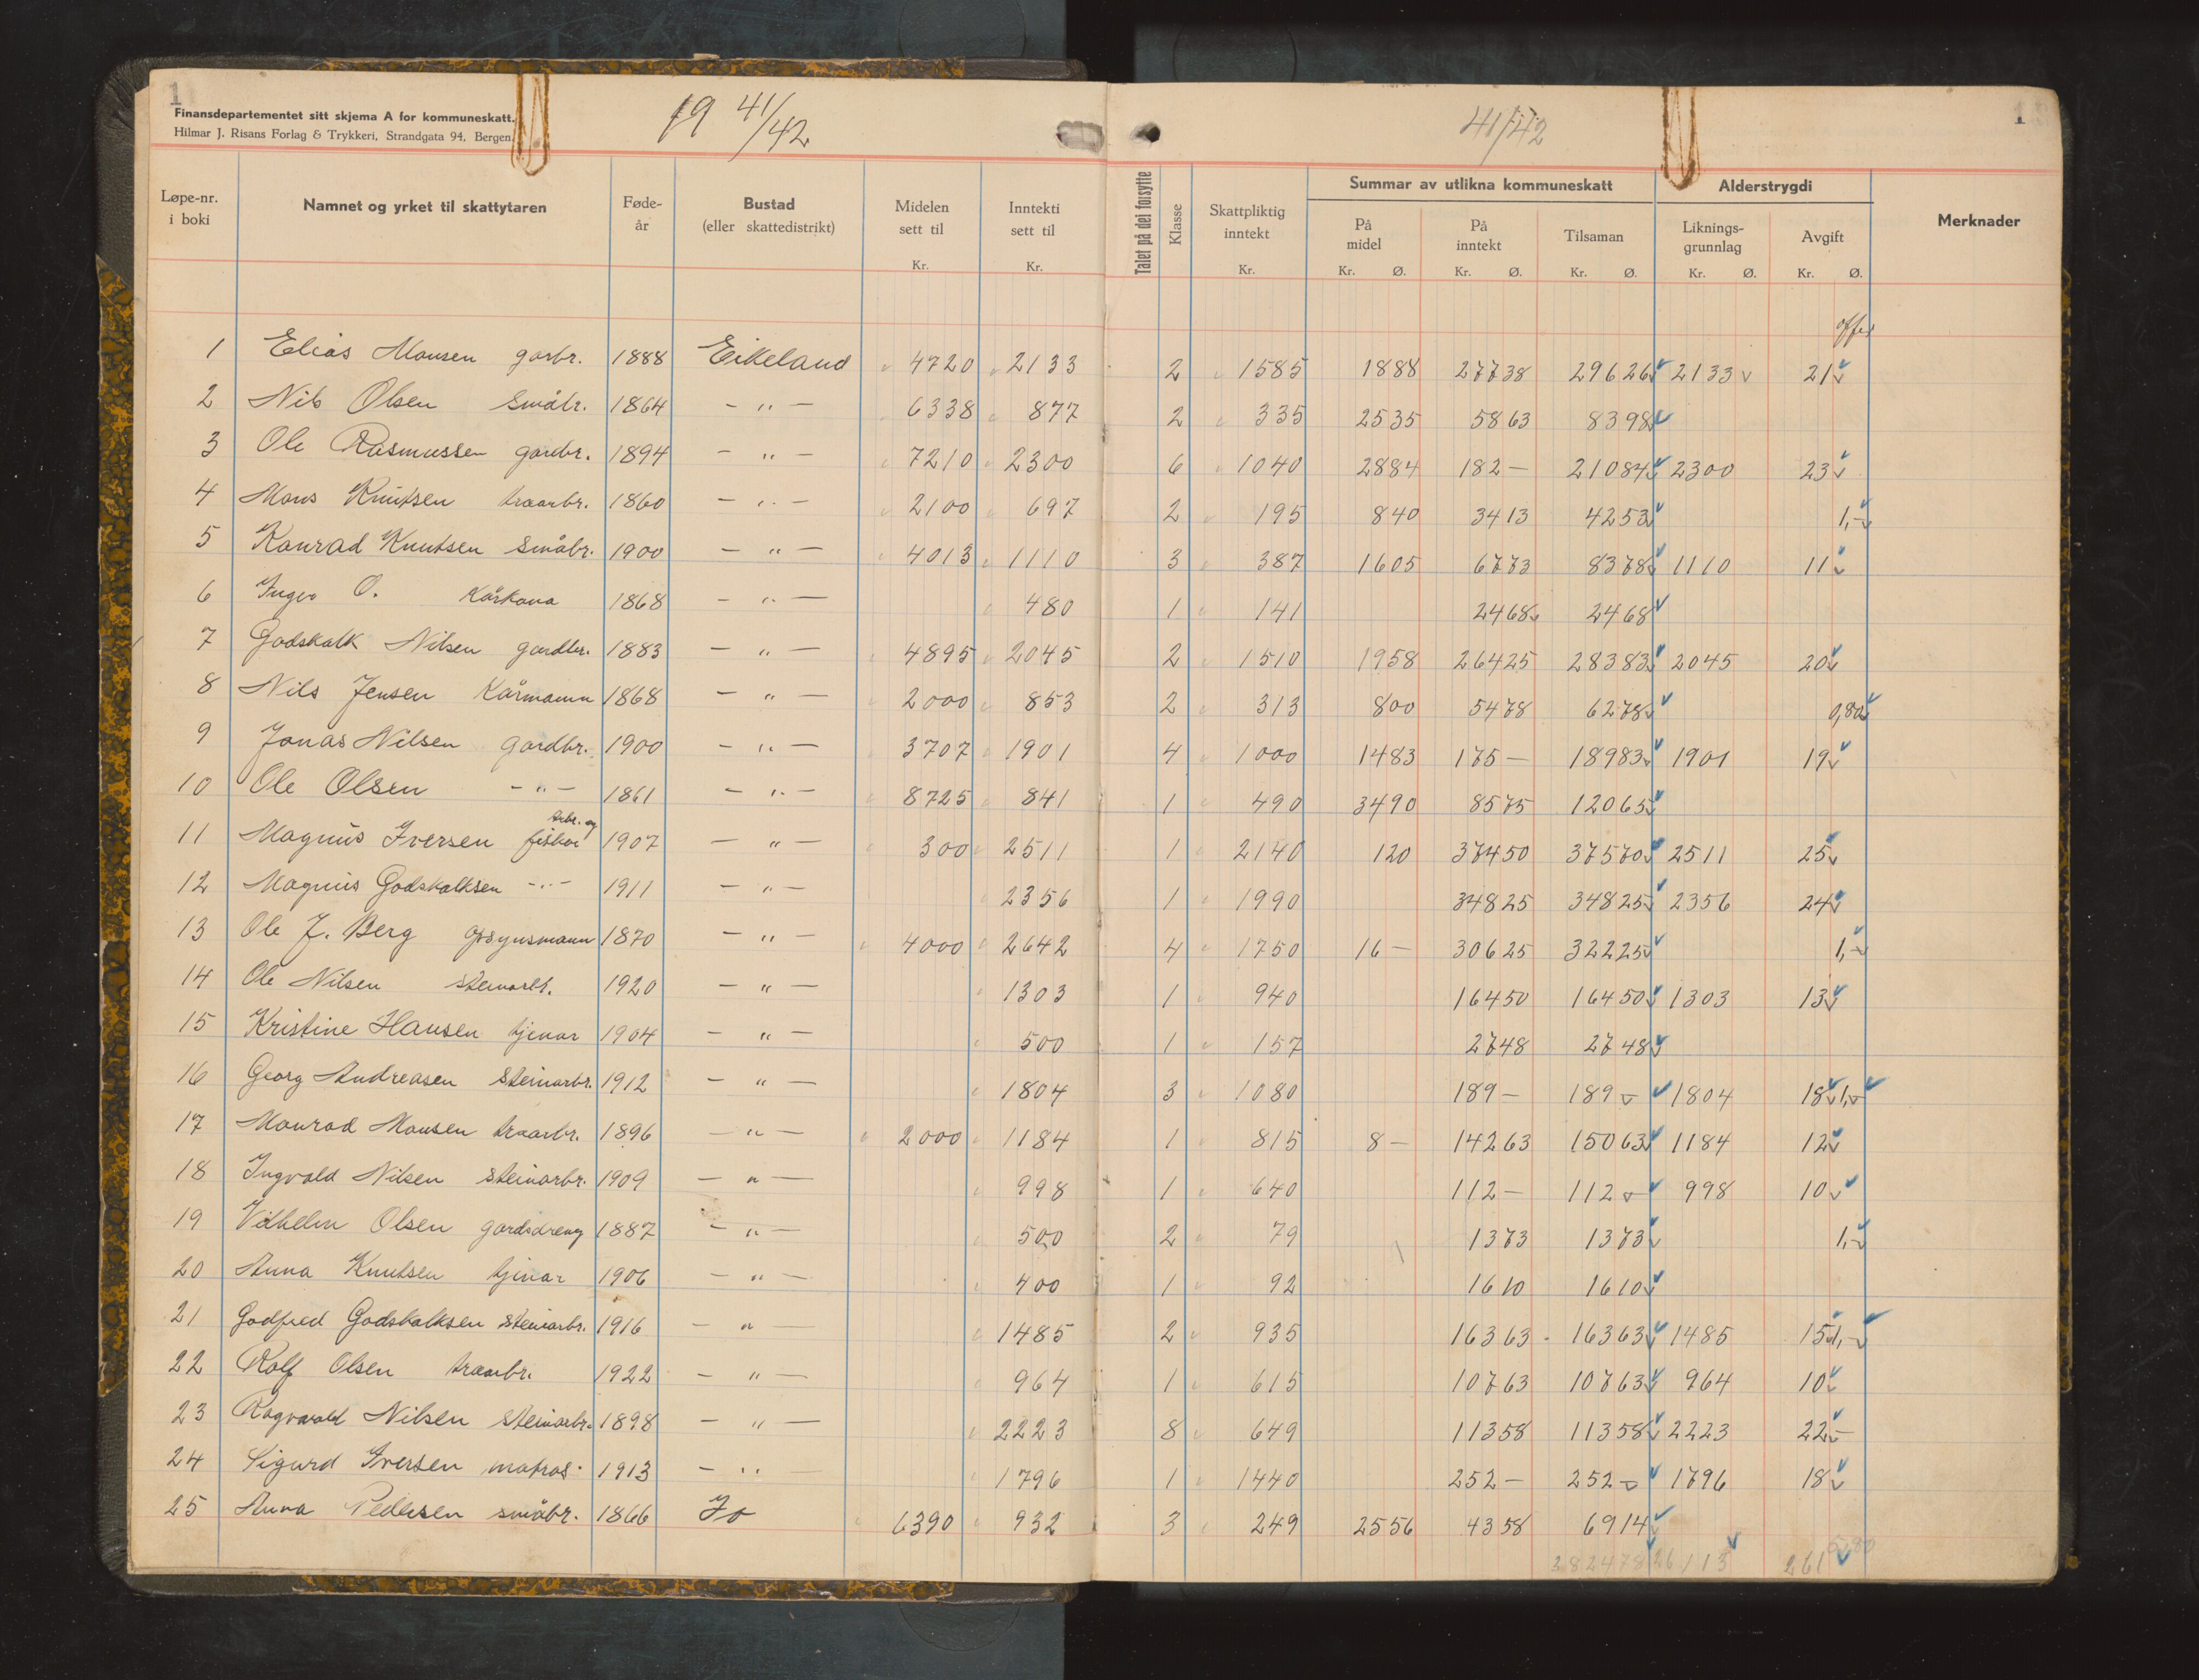 1
Finansdepartementet sitt skjema A for kommuneskatt.
Hilmar J. Risans Forlag & Trykkeri, Strandgata 94, Bergen.
1941/42
41/42
1
Løpe-nr. i boki | Namnet og yrket til skattytaren |Føde-år | Bustad (eller skattedistrikt) | Midelen sett til Kr. | Inntekti sett til Kr. | Talet på dei forsytte | Klasse | Skattpliktig inntekt Kr. | Summar av utlikna kommuneskatt | På midel Kr. Ø. | På inntekt Kr. Ø. | Tilsaman Kr. Ø. | Alderstrygdi | Liknings-grunnlag Kr. Ø. | Avgift Kr. Ø. | Merknader
1 Elias Monsen garbr. 1888 Eikeland 4720 2133 2 1585 1888 27738 29626 2133 21
2 Nils Olsen småbr. 1864 - " - 6338 877 2 335 2535 5863 8398
3 Ole Rasmussen gardbr. 1894 - " - 7210 2300 6 1040 2884 182- 21084 2300 23
4 Mons Knutsen traarbr. 1860 - " - 2100 697 2 195 840 3413 4253 1,-
5 Konrad Knutsen småbr. 1900 - " - 4013 1110 3 387 1605 6773 8378 1110 11
6 O. Kårkona 1868 - " - 480 1 141 2468 2468
7 Godskalk Nilsen gardbr. 1883 - " - 4895 2045 2 1510 1958 26425 28383 2045 20
8 Nils Jensen Kårmann 1868 - " - 2000 853 2 313 800 5478 6278 0,80
9 Jonas Nilsen gardbr. 1900 - " - 3707 1901 4 1000 1483 175- 18983 1901 19
10 Ole Olsen - " - 1861 - " - 8725 841 1 490 3490 8575 12065
11 Magnus Iversen arbr. og fiskar 1907 - " - 300 2511 1 2140 120 37450 37570 2511 25
12 Magnus Godskalksen - " - 1911 - " - 2356 1 1990 34825 34825 2356 24
13 Ole J. Berg opsynsmann 1870 - " - 4000 2642 4 1750 16- 30625 32225 1,-
14 Ole Nilsen steinarb. 1920 - " - 1303 1 940 16450 16450 1303 13
15 Kristine Hansen tjenar 1904 - " - 500 1 157 2748 2748
16 Georg Andreasen steinarbr. 1912 - " - 1804 3 1080 189- 189- 1804 18 1,-
17 Monrad Monsen traarbr. 1896 - " - 2000 1184 1 815 8- 14263 15063 1184 12
18 Ingvald Nilsen steinarbr. 1909 - " - 998 1 640 112- 112- 998 10
19 Vilhelm Olsen gardsdreng 1887 - " - 500 2 79 1373 1373 1,-
20 Anna Knutsen tjenar 1906 - " - 400 1 92 1610 1610
21 Godfred Godskalksen steinarbr. 1916 - " - 1485 2 935 16363 16363 1485 15 1,-
22 Rolf Olsen traarbr. 1922 - " - 964 1 615 10763 10763 964 10
23 Ragvald Nilsen steinarbr. 1898 - " - 2223 8 649 11358 11358 2223 22-
24 Sigurd Iversen matros 1913 - " - 1796 1 1440 252- 252- 1796 18
25 Anna Pedersen småbr. 1866 Jo 6390 932 3 249 2556 4358 6914
382478 26113 261